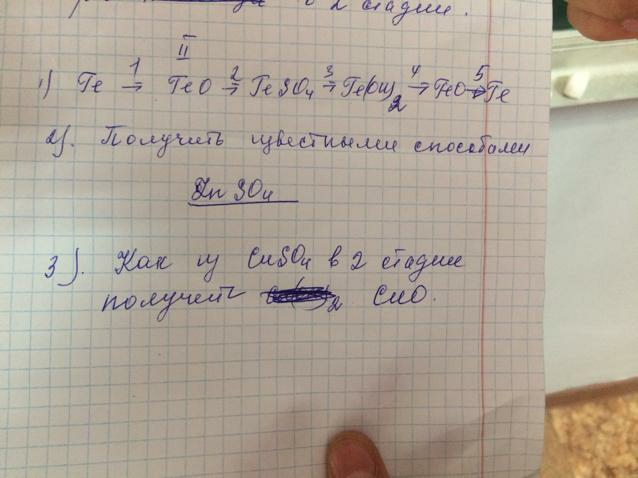 в 2 стадии.
II
1) Fe 1→ FeO 2→ FeSO4 3→ Fe(OH)2 4→ FeO 5→ Fe
2). Получить известными способами
ZnSO4
3). Как из CuSO4 в 2 стадии
получить CuO.